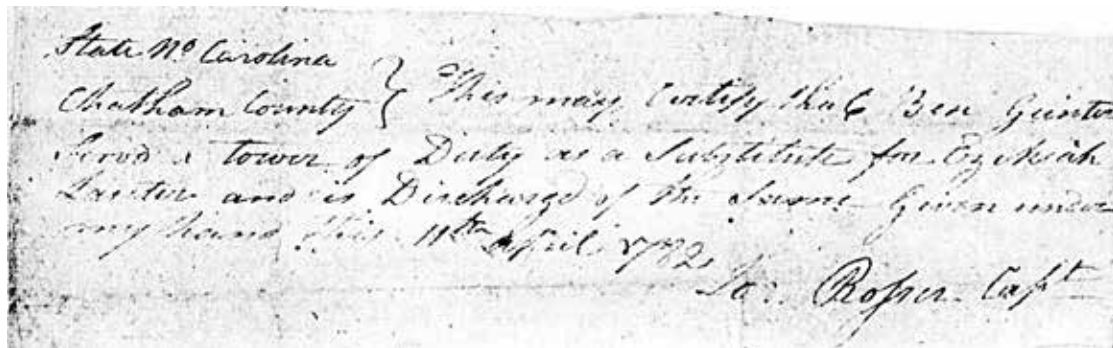 State No Carolina
Chatham County } This may Certify that Ben Gunter
Servd a tower of Duty as a Substitute for Ezekiah
Lawter and is Discharged of the Same Given under
my hand this 11th April 1782
Capt